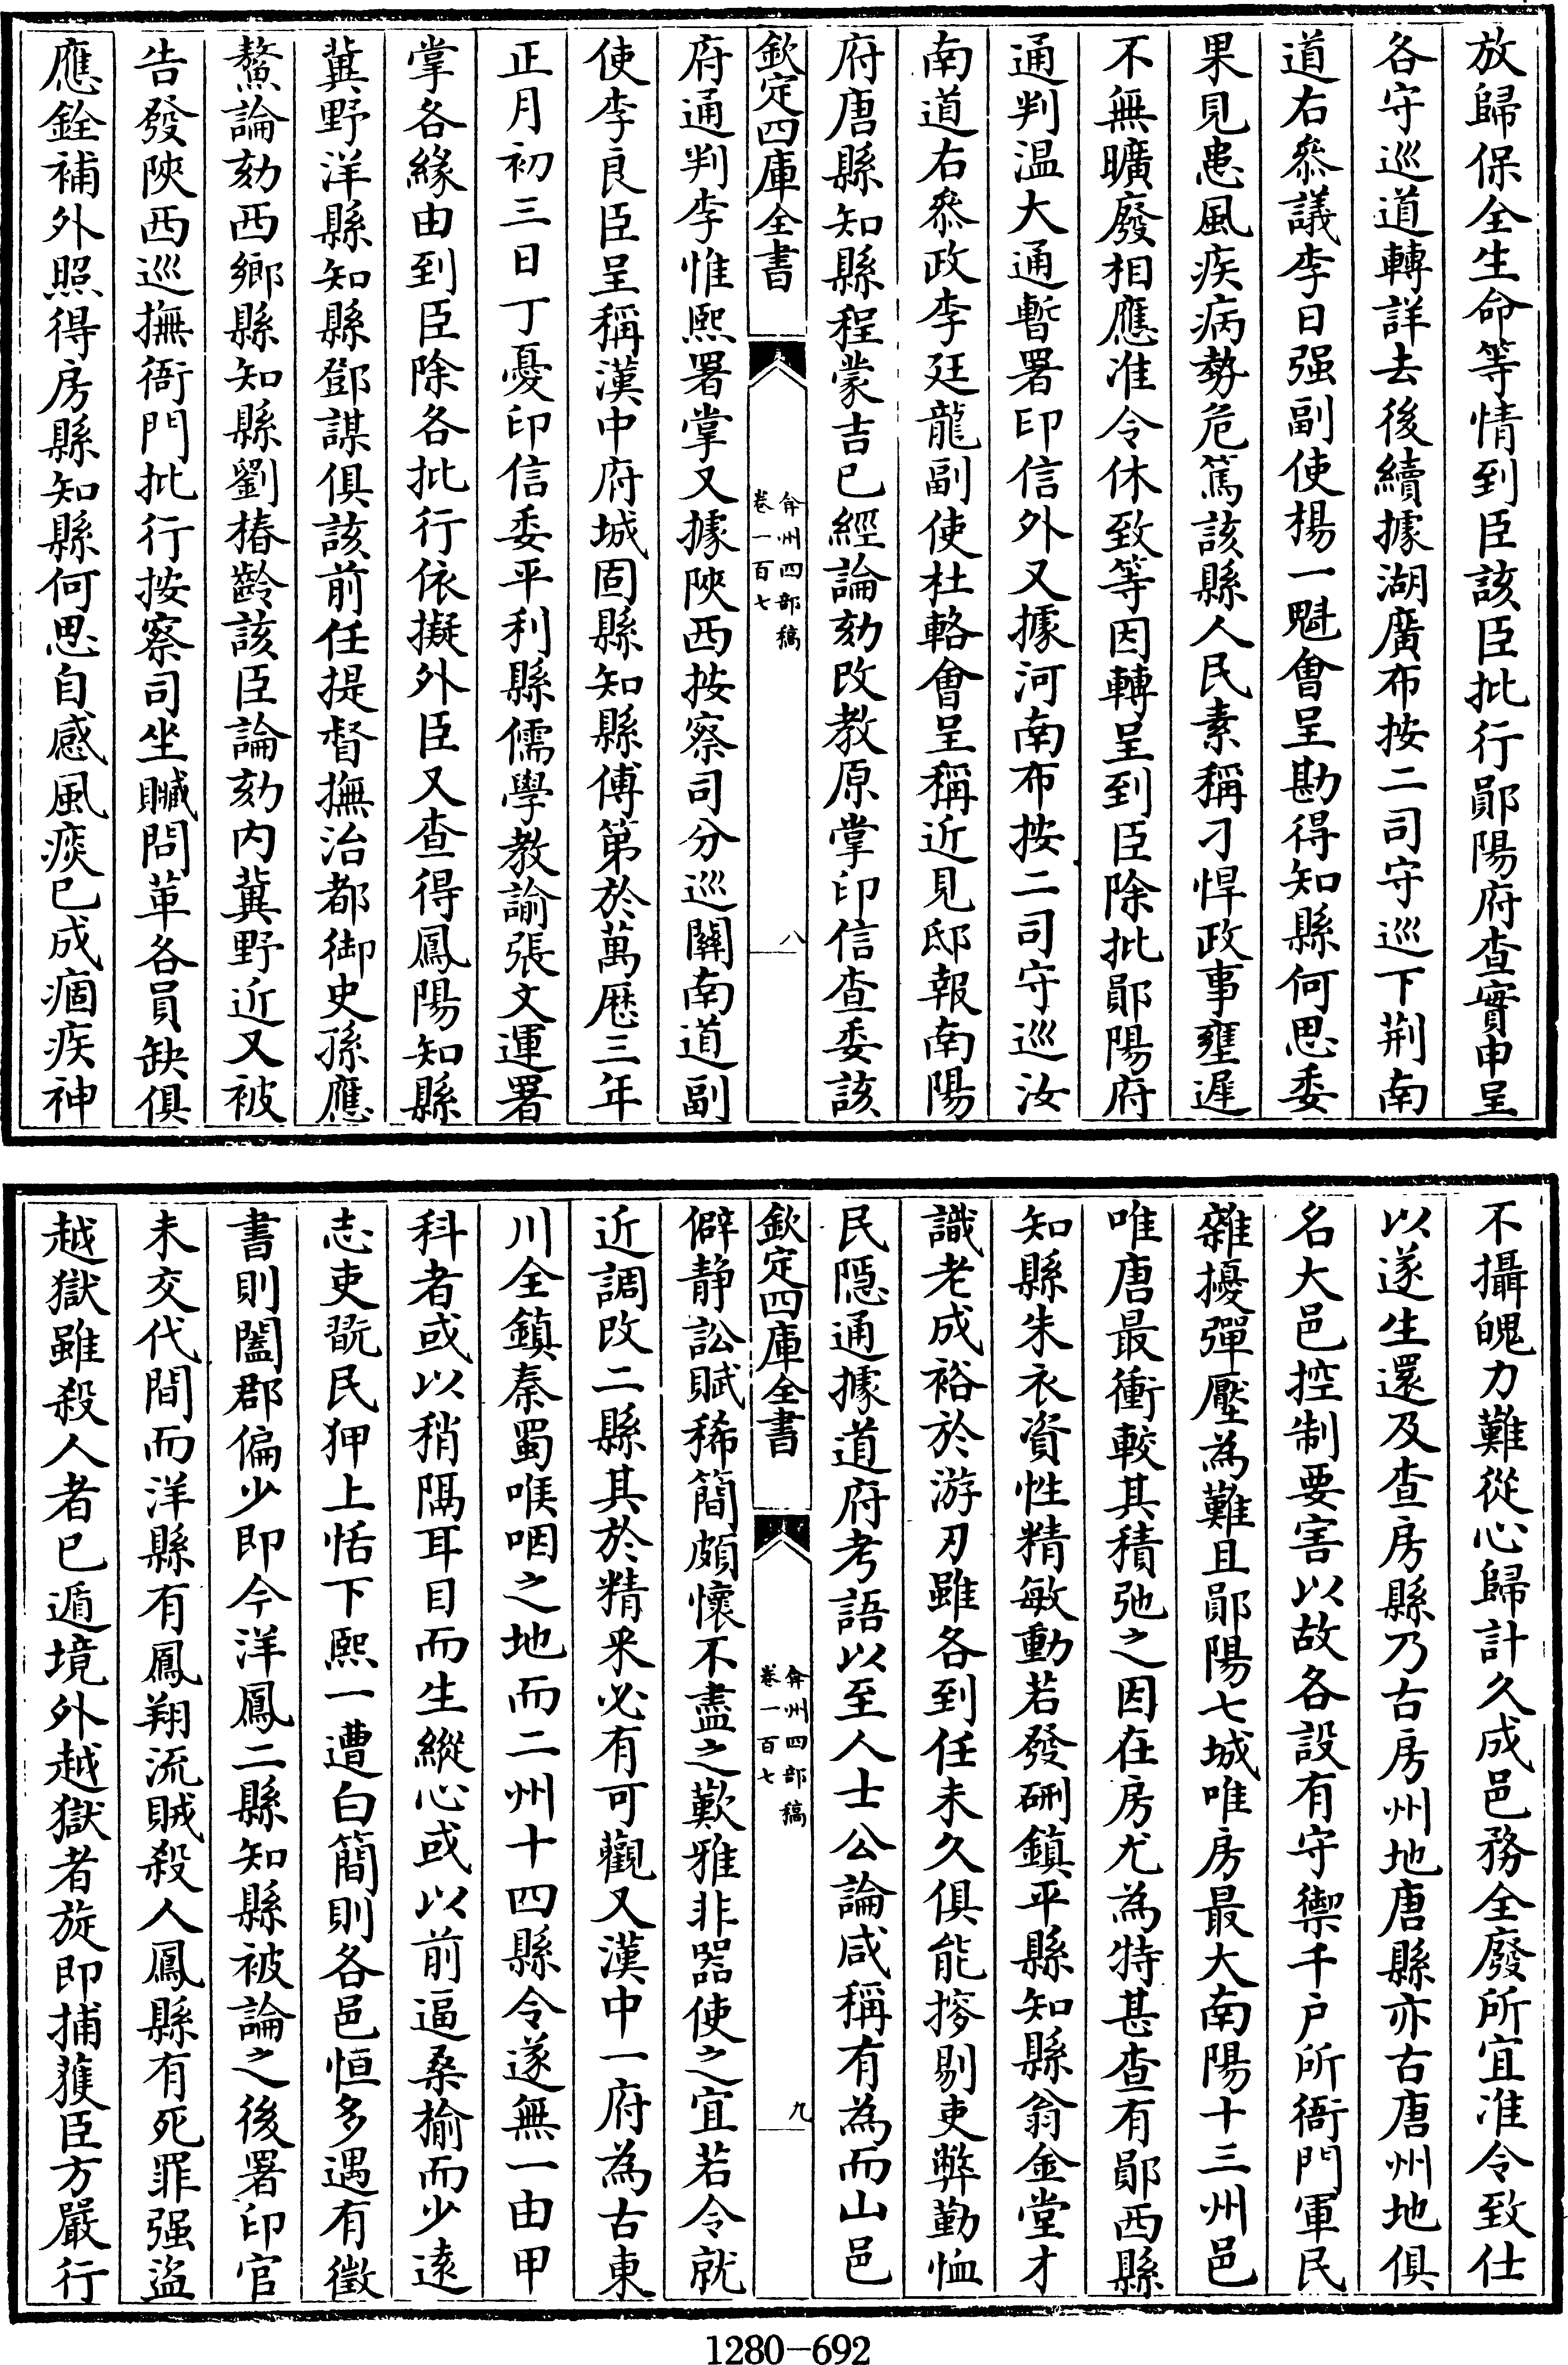 放歸保全生命等情到臣該臣批行鄖陽府查實申呈
各守巡道轉詳去後續據湖廣布按二司守巡下荆南
道右叅議李日强副使楊一魁㑹呈勘得知縣何思委
果見患風疾病勢危篤該縣人民素稱刁悍政事壅遲
不無曠廢相應准令休致等因轉呈到臣除批鄖陽府
通判温大通暫署印信外又據河南布按二司守巡汝
南道右叅政李廷龍副使杜輅㑹呈稱近見邸報南陽
府唐縣知縣程蒙吉已經論劾改教原掌印信查委該
欽定四庫全書
弇州四部稿
卷一百七
八
府通判李惟熙署掌又據陜西按察司分巡關南道副
使李良臣呈稱漢中府城固縣知縣傅第於萬厯三年
正月初三日丁憂印信委平利縣儒學教諭張文運署
掌各緣由到臣除各批行依擬外臣又查得鳳陽知縣
冀野洋縣知縣鄧謀俱該前任提督撫治都御史孫應
鰲論劾西鄉縣知縣劉椿齡該臣論劾内冀野近又被
告發陜西巡撫衙門批行按察司坐贓問革各員缺俱
應銓補外照得房縣知縣何思自感風痰已成痼疾神
不攝魄力難從心歸計久成邑務全廢所宜准令致仕
以遂生還及查房縣乃古房州地唐縣亦古唐州地俱
名大邑控制要害以故各設有守禦千户所衙門軍民
雜擾彈壓為難且鄖陽七城唯房最大南陽十三州邑
唯唐最衝較其積弛之因在房尤為特甚查有鄖西縣
知縣朱衣資性精敏動若發硎鎮平縣知縣翁金堂才
識老成裕於游刃雖各到任未久俱能㨍剔吏弊勤恤
民隠通據道府考語以至人士公論咸稱有為而山邑
欽定四庫全書
弇州四部稿
卷一百七
九
僻静訟賦稀簡頗懷不盡之歎雅非器使之宜若令就
近調改二縣其於精采必有可觀又漢中一府為古東
川全鎮秦蜀喉咽之地而二州十四縣令遂無一由甲
科者或以稍隔耳目而生縱心或以前逼桑榆而少遠
志吏翫民狎上恬下熙一遭白簡則各邑恒多遇有徵
書則闔郡偏少即今洋鳳二縣知縣被論之後署印官
未交代間而洋縣有鳳翔流賊殺人鳳縣有死罪强盜
越獄雖殺人者已遁境外越獄者旋即捕獲臣方嚴行
1280-692